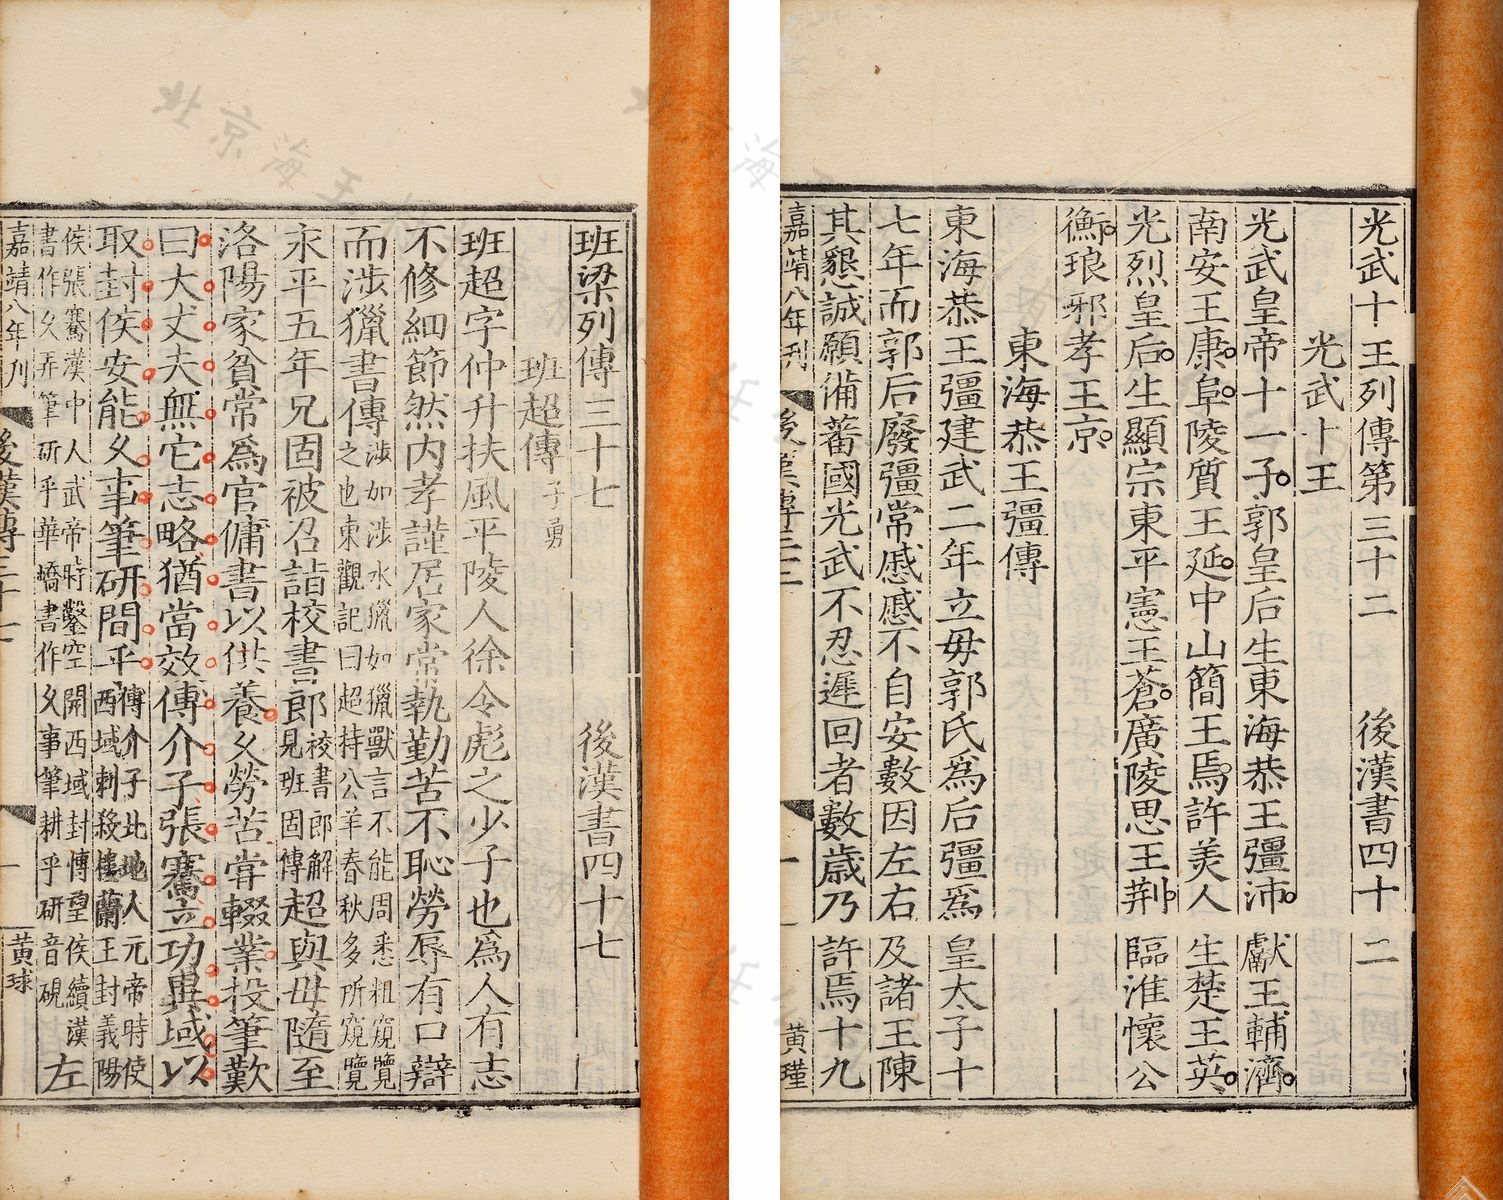 光武十王列傳第三十二　後漢書四十二
光武十王
光武皇帝十一子郭皇后生東海恭王彊沛獻王輔濟
南安王康阜陵質王延中山簡王焉許美人生楚王英
光烈皇后生顯宗東平憲王蒼廣陵思王荆臨淮懷公
衡琅邪孝王京
東海恭王彊傳
東海恭王彊建武二年立毋郭氏爲后彊爲皇太子十
七年而郭后廢彊常慼慼不自安數因左右及諸王陳
其懇誠願備蕃國光武不忍遲回者數歲乃許焉十九
嘉靖八年刊　後漢傳三十二　一　黃瑾
班梁列傳三十七　後漢書四十七
班超傳子勇
班超字仲升扶風平陵人徐令彪之少子也爲人有志
不修細節然内孝謹居家常執勤苦不恥勞辱有口辯
而涉獵書傳涉如涉水獵如獵獸言不能周悉粗窺覽之也東觀記曰超持公羊春秋多所窺覽
永平五年兄固被召詣校書郎校書郎解見班固傳超與母隨至
洛陽家貧常爲官傭書以供養久勞苦甞輟業投筆歎
曰大丈夫無它志略猶當效傅介子張騫立功異域以
取封侯安能久事筆研間乎傅介子北地人元帝時使西域刺殺樓蘭王封義陽
侯張騫漢中人武帝時鑿空開西域封博望侯續漢書作久弄筆研乎華嶠書作久事筆耕乎研音硯左
嘉靖八年刊　後漢傳三十七　一　黃球